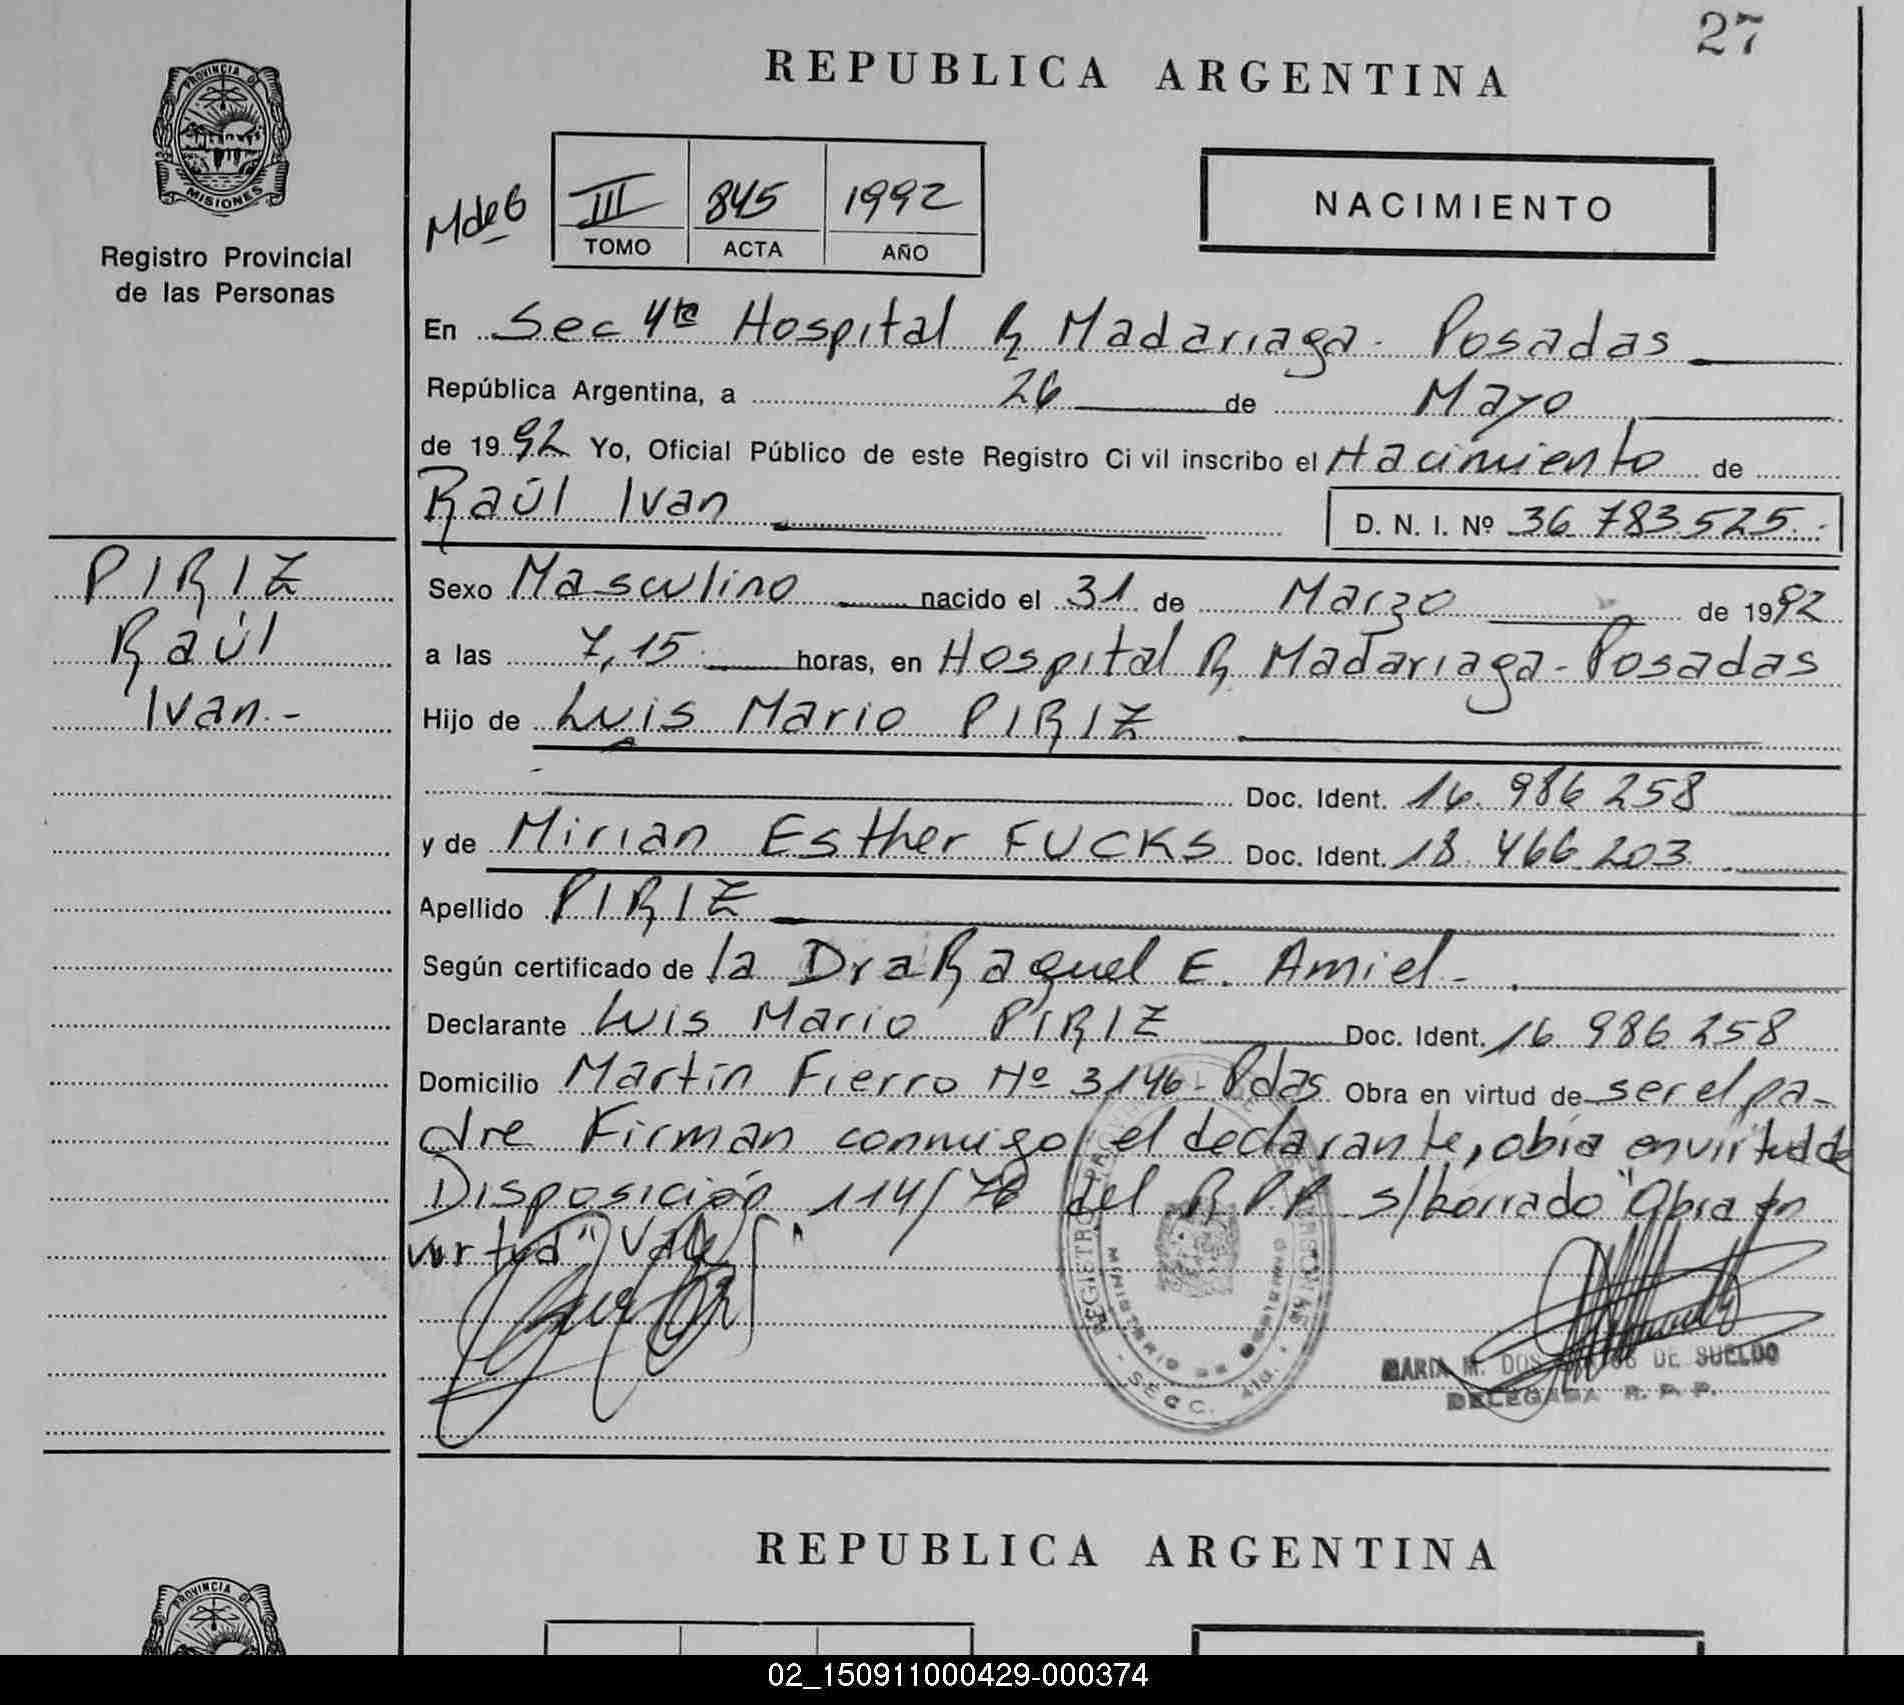 27
REPUBLICA ARGENTINA
PROVINCIA DE
MISIONES
Registro Provincial
de las Personas
MdeG
III 845 1992
TOMO ACTA AÑO
NACIMIENTO
En Sec 4ta Hospital R Madariaga - Posadas
República Argentina, a 26 de Mayo
de 1992 Yo, Oficial Público de este Registro Civil inscribo el Nacimiento de
Raúl Ivan D. N. I. Nº 36.783.525.-
PIRIZ
Raúl
Ivan.-
Sexo Masculino nacido el 31 de Marzo de 1992
a las 7,15 horas, en Hospital R Madariaga - Posadas
Hijo de Luis Mario PIRIZ
Doc. Ident. 16.986.258
y de Mirian Esther FUCKS Doc. Ident. 18.466.203
Apellido PIRIZ
Según certificado de la Dra Raquel E. Amiel -
Declarante Luis Mario PIRIZ Doc. Ident. 16.986.258
Domicilio Martín Fierro Nº 3146 - Pdas Obra en virtud de ser el pa-
dre Firman conmigo el declarante, obra en virtud de
Disposición 114/78 del R.P.P. s/borrado "Obra en
virtud" Vale
MINISTERIO DE GOBIERNO
SECC.
MARIA M. DOS SANTOS DE SUELDO
DELEGADA R. P. P.
REPUBLICA ARGENTINA
PROVINCIA DE
02_150911000429-000374